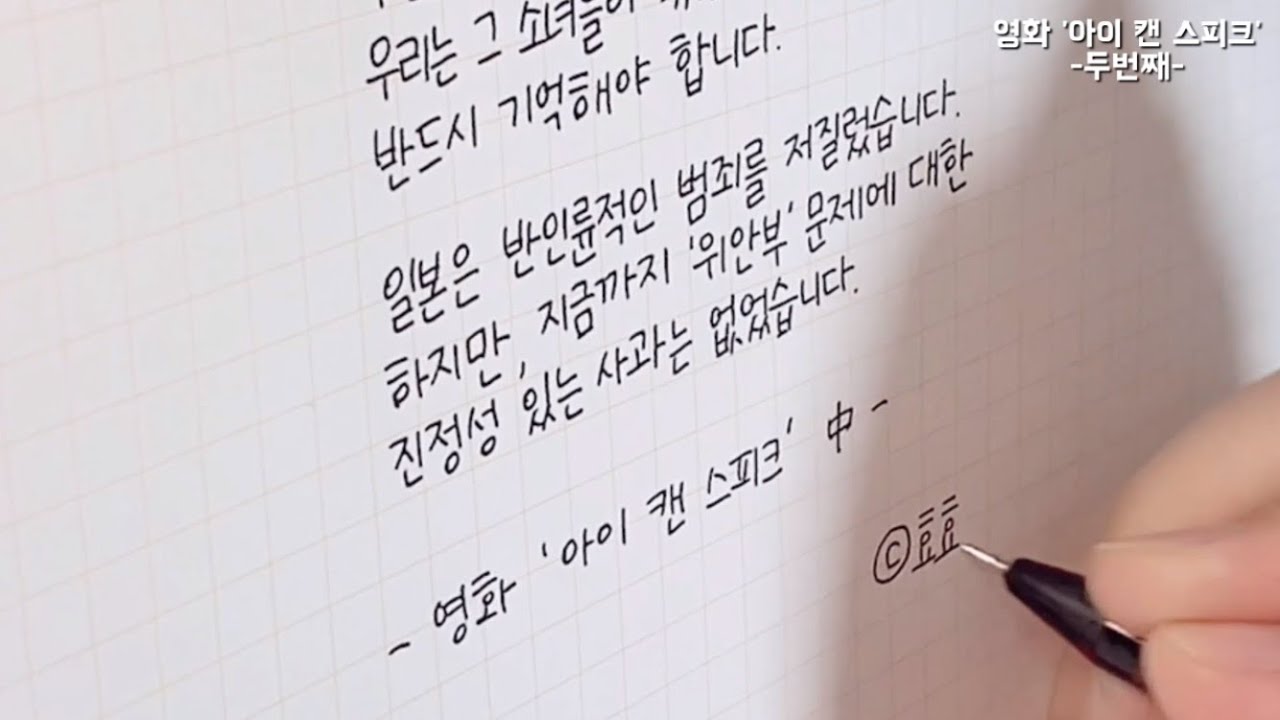 영화 '아이 캔 스피크'
-두번째-
우리는 그 소녀들이
반드시 기억해야 합니다.
일본은 반인륜적인 범죄를 저질렀습니다.
하지만, 지금까지 '위안부' 문제에 대한
진정성 있는 사과는 없었습니다.
- 영화 '아이 캔 스피크' 中 -
©효효